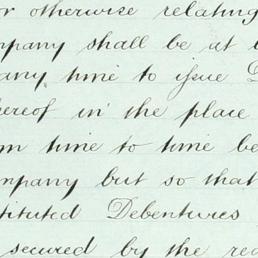 or otherwise relating
mpany shall be at l
any time to issue D
hereof in the place
m time to time be
mpany but so that
tituted Debentures
secured by the re